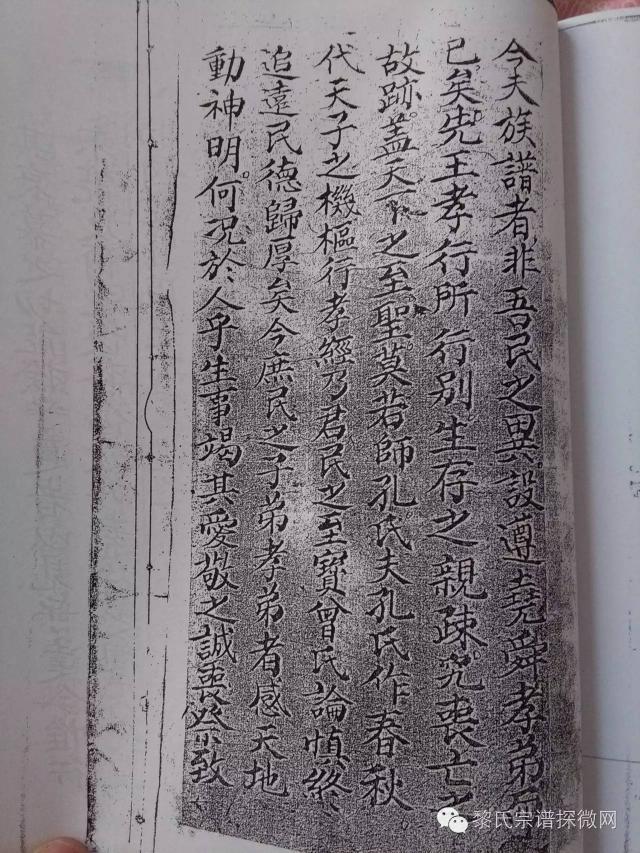 今夫族譜者非吾民之異設遵堯舜孝弟而
已矣先王孝行所行別生存之親疎究喪亡之
故跡蓋天下之至聖莫若師孔氏夫孔氏作春秋
代天子之機樞行孝經乃君民之至寶曾氏論慎終
追遠民德歸厚矣今庶民之子弟孝弟者感天地
動神明何況於人乎生事竭其愛敬之誠喪祭致
黎氏宗谱探微网